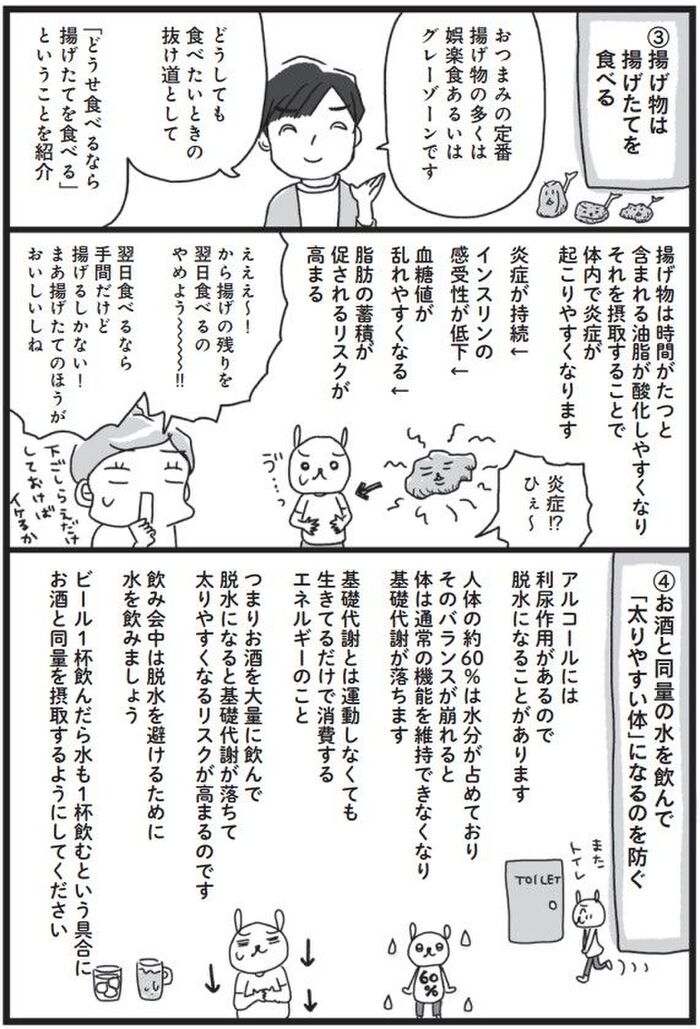 ③揚げ物は
揚げたてを
食べる
おつまみの定番
揚げ物の多くは
娯楽食あるいは
グレーゾーンです
どうしても
食べたいときの
抜け道として
「どうせ食べるなら
揚げたてを食べる」
ということを紹介
揚げ物は時間がたつと
含まれる油脂が酸化しやすくなり
それを摂取することで
体内で炎症が
起こりやすくなります
炎症が持続↓
インスリンの
感受性が低下↓
血糖値が
乱れやすくなる↓
脂肪の蓄積が
促されるリスクが
高まる
炎症!?
ひぇ〜
ゔ…っ
えええ〜!
から揚げの残りを
翌日食べるの
やめよう〜〜〜!!
翌日食べるなら
手間だけど
揚げるしかない!
まあ揚げたてのほうが
おいしいしね
下ごしらえだけ
しておけば
イケるか
④お酒と同量の水を飲んで
「太りやすい体」になるのを防ぐ
また
トイレ
TOILET
アルコールには
利尿作用があるので
脱水になることがあります
人体の約60%は水分が占めており
そのバランスが崩れると
体は通常の機能を維持できなくなり
基礎代謝が落ちます
60
%
基礎代謝とは運動しなくても
生きてるだけで消費する
エネルギーのこと
つまりお酒を大量に飲んで
脱水になると基礎代謝が落ちて
太りやすくなるリスクが高まるのです
飲み会中は脱水を避けるために
水を飲みましょう
ビール1杯飲んだら水も1杯飲むという具合に
お酒と同量を摂取するようにしてください